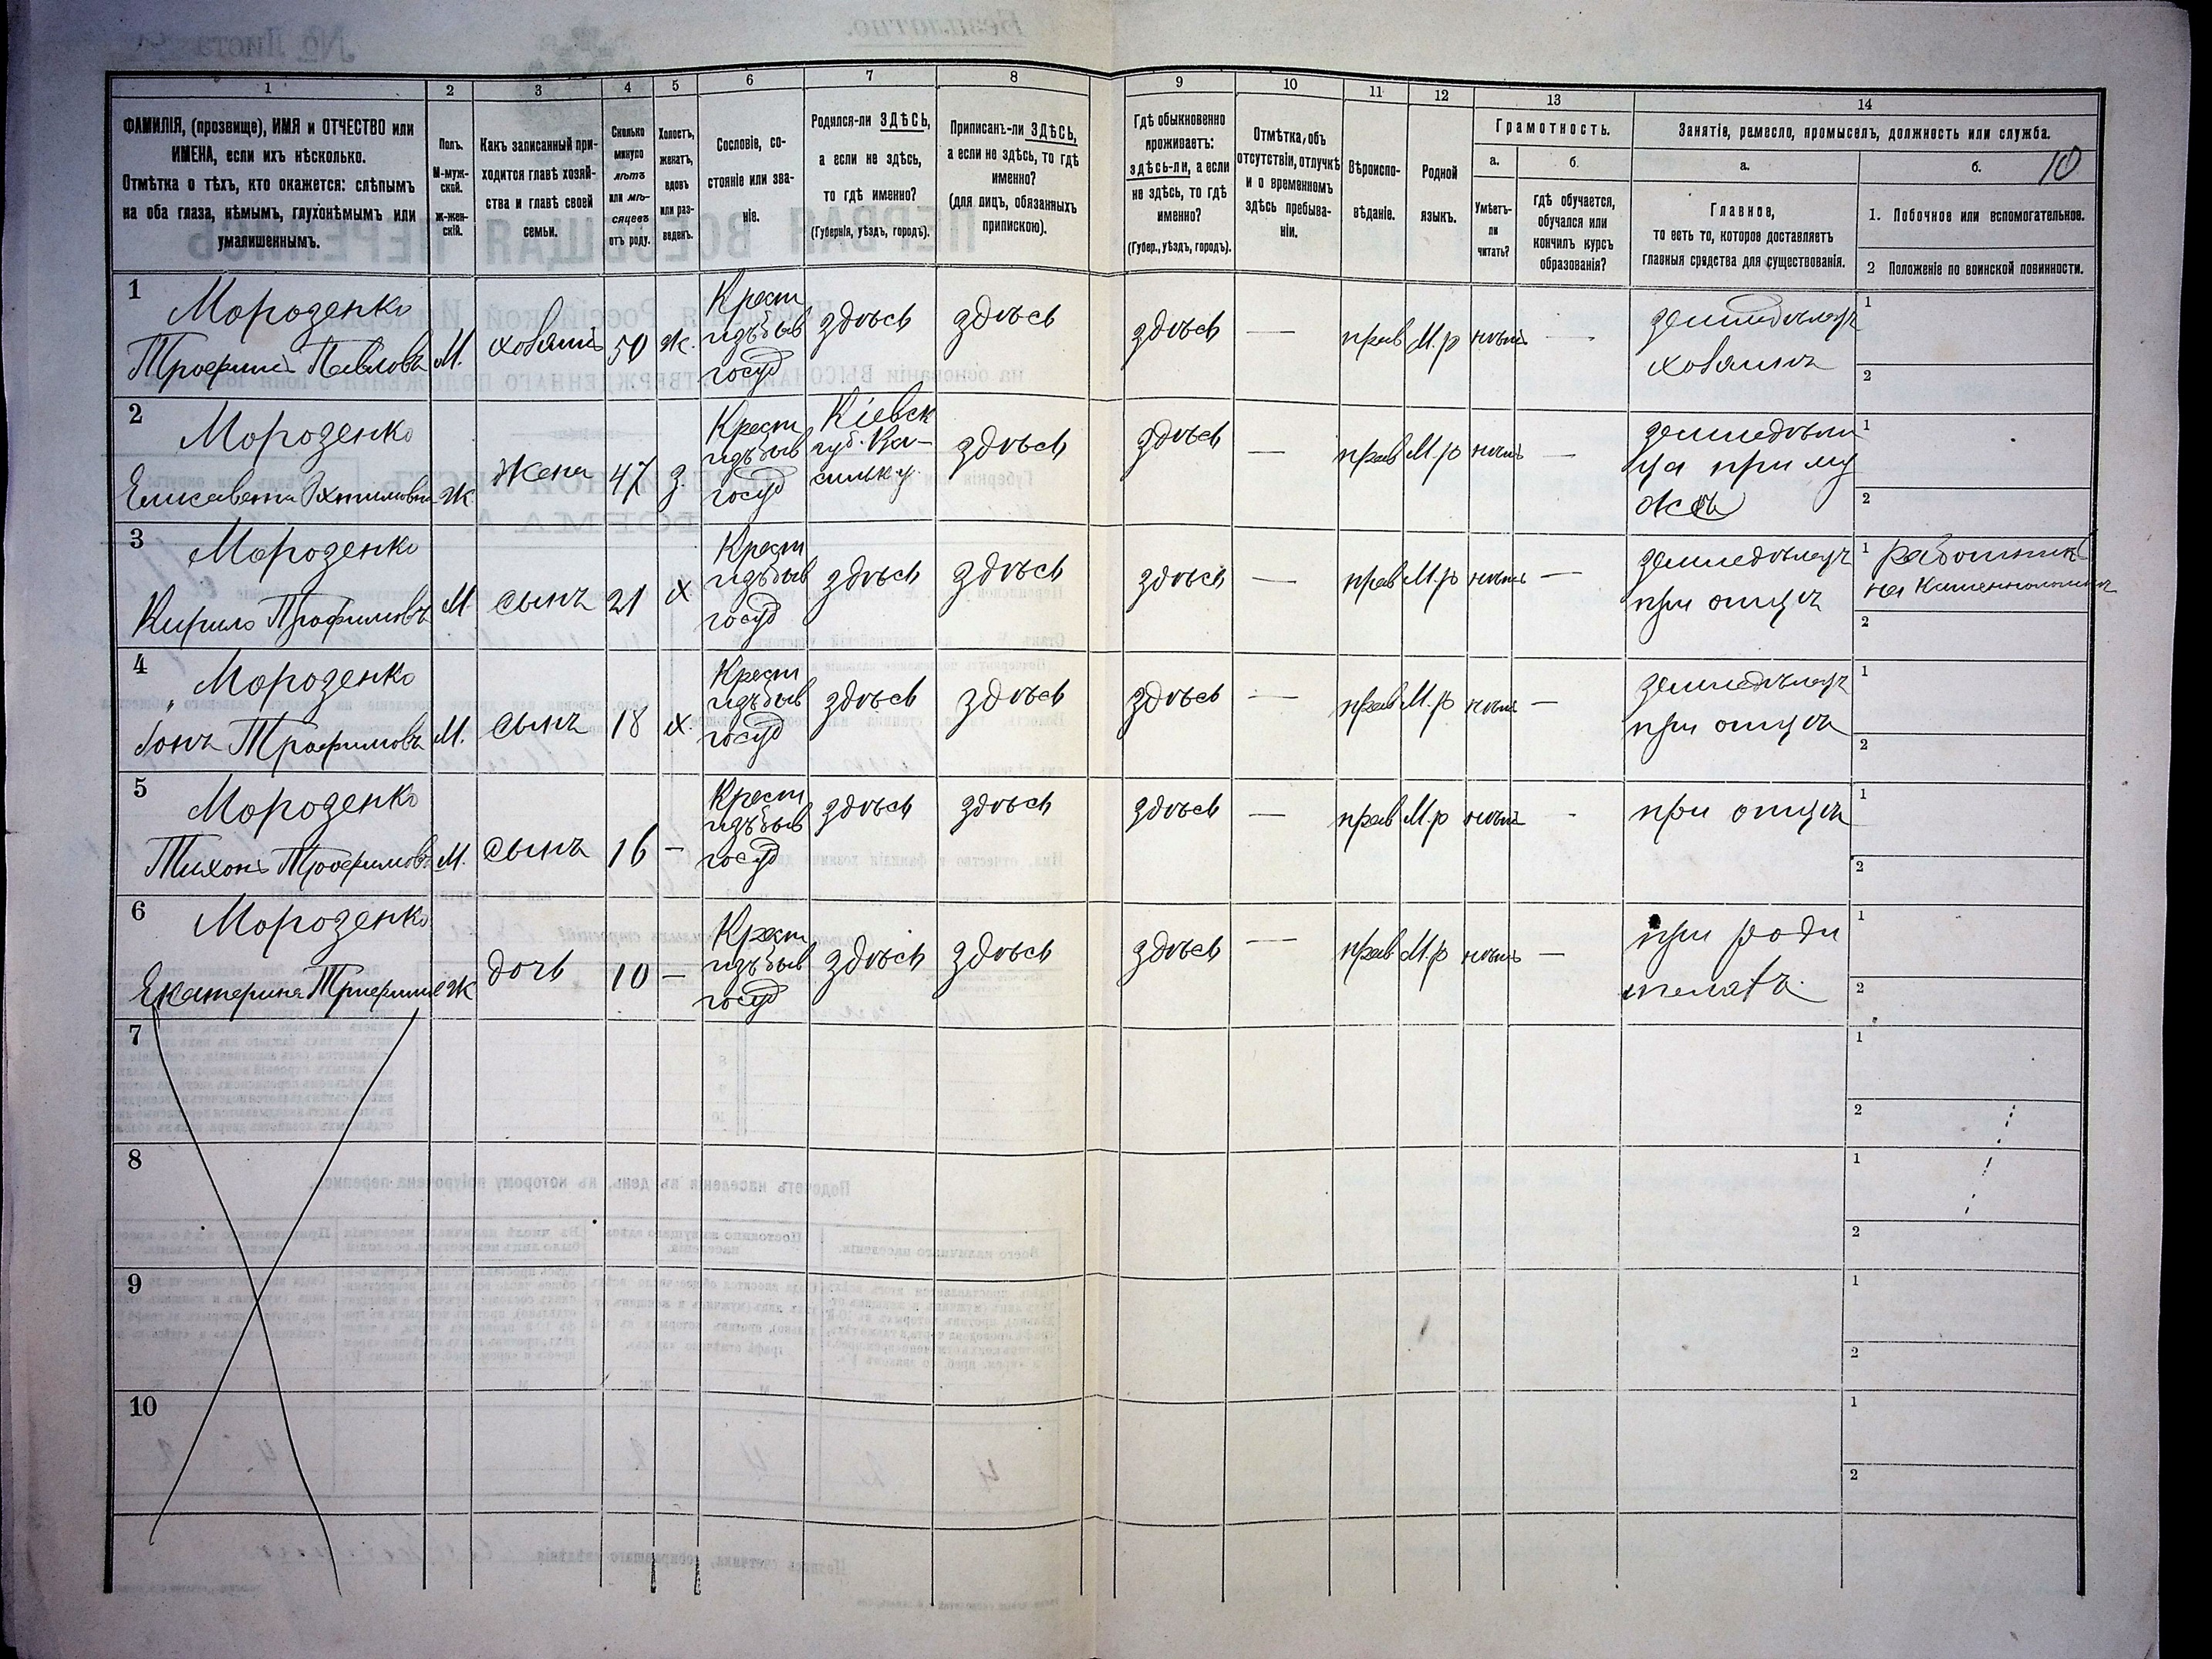 1 2 3 4 5 6 7 8 9 10 11 12 13 14
ФАМИЛІЯ, (прозвище), ИМЯ и ОТЧЕСТВО или
ИМЕНА, если ихъ нѣсколько.
Отмѣтка о тѣхъ, кто окажется: слѣпымъ
на оба глаза, нѣмымъ, глухонѣмымъ или
умалишеннымъ.
Полъ.
М-муж-
ской.
ж-жен-
скій.
Какъ записанный при-
ходится главѣ хозяй-
ства и главѣ своей
семьи.
Сколько
минуло
лѣтъ
или мѣ-
сяцевъ
отъ роду.
Холостъ,
женатъ,
вдовъ
или раз-
веденъ.
Сословіе, со-
стояніе или зва-
ніе.
Родился-ли ЗДѢСЬ,
а если не здѣсь,
то гдѣ именно?
(Губернія, уѣздъ, городъ).
Приписанъ-ли ЗДѢСЬ,
а если не здѣсь, то гдѣ
именно?
(для лицъ, обязанныхъ
припискою).
Гдѣ обыкновенно
проживаетъ:
здѣсь-ли, а если
не здѣсь, то гдѣ
именно?
(Губер., уѣздъ, городъ).
Отмѣтка, объ
отсутствіи, отлучкѣ
и о временномъ
здѣсь пребыва-
ніи.
Вѣроиспо-
вѣданіе.
Родной
языкъ.
Грамотность.
а.
Умѣетъ-
ли
читать?
б.
гдѣ обучается,
обучался или
кончилъ курсъ
образованія?
Занятіе, ремесло, промыселъ, должность или служба.
а.
Главное,
то есть то, которое доставляетъ
главныя средства для существованія.
б. 10
1. Побочное или вспомогательное.
2 Положеніе по воинской повинности.
1
Морозенко
Трофимъ Павловъ
М.
хозяинъ
50
ж.
Крест
изъ быв
госуд
здѣсь
здѣсь
здѣсь
—
прав
М.р
нѣтъ
—
земледѣлецъ
хозяинъ
1
2
2
Морозенко
Елисавета
Ж
жена
47
з.
Крест
изъ быв
госуд
Кіевск
губ. Ва-
сильк у.
здѣсь
здѣсь
—
прав
М.р
нѣтъ
—
земледѣли
ца при му
жѣ
1
2
3
Морозенко
Кирило Трофимовъ
М
сынъ
21
х
Крест
изъ быв
госуд
здѣсь
здѣсь
здѣсь
—
прав
М.р
нѣтъ
—
земледѣлецъ
при отцѣ
1 работникъ
на
2
4
Морозенко
Трофимовъ
М.
сынъ
18
х.
Крест
изъ быв
госуд
здѣсь
здѣсь
здѣсь
—
прав
М.р
нѣтъ
—
земледѣлецъ
при отцѣ
1
2
5
Морозенко
Тихонъ Трофимовъ
М.
сынъ
16
—
Крест
изъ быв
госуд
здѣсь
здѣсь
здѣсь
—
прав
М.р
нѣтъ
-
при отцѣ
1
2
6
Морозенко
Екатерина
Ж
дочь
10
—
Крест
изъ быв
госуд
здѣсь
здѣсь
здѣсь
—
прав
М.р
нѣтъ
—
при роди
теляхъ
1
2
7
1
2
8
1
2
9
1
2
10
1
2